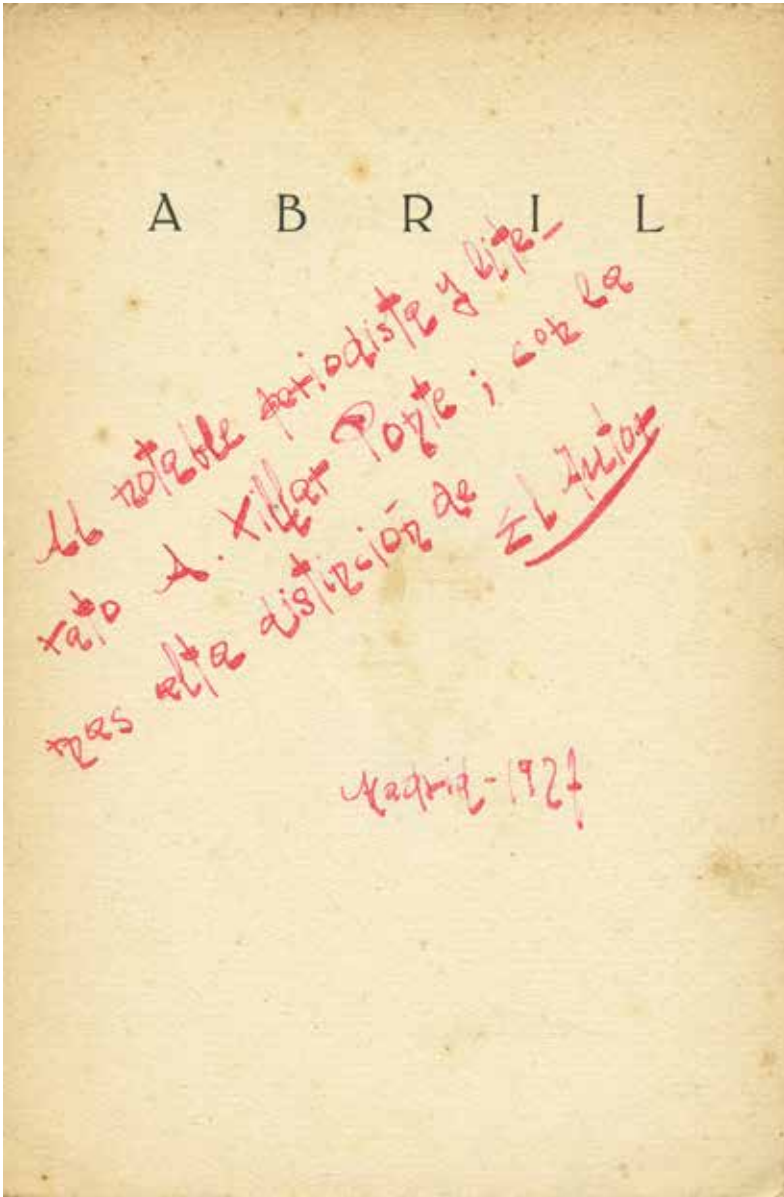 ABRIL
Al notable periodista y lite-
rato A. Villar Ponte; con la
mas alta distinción de
El Autor
Madrid-1927